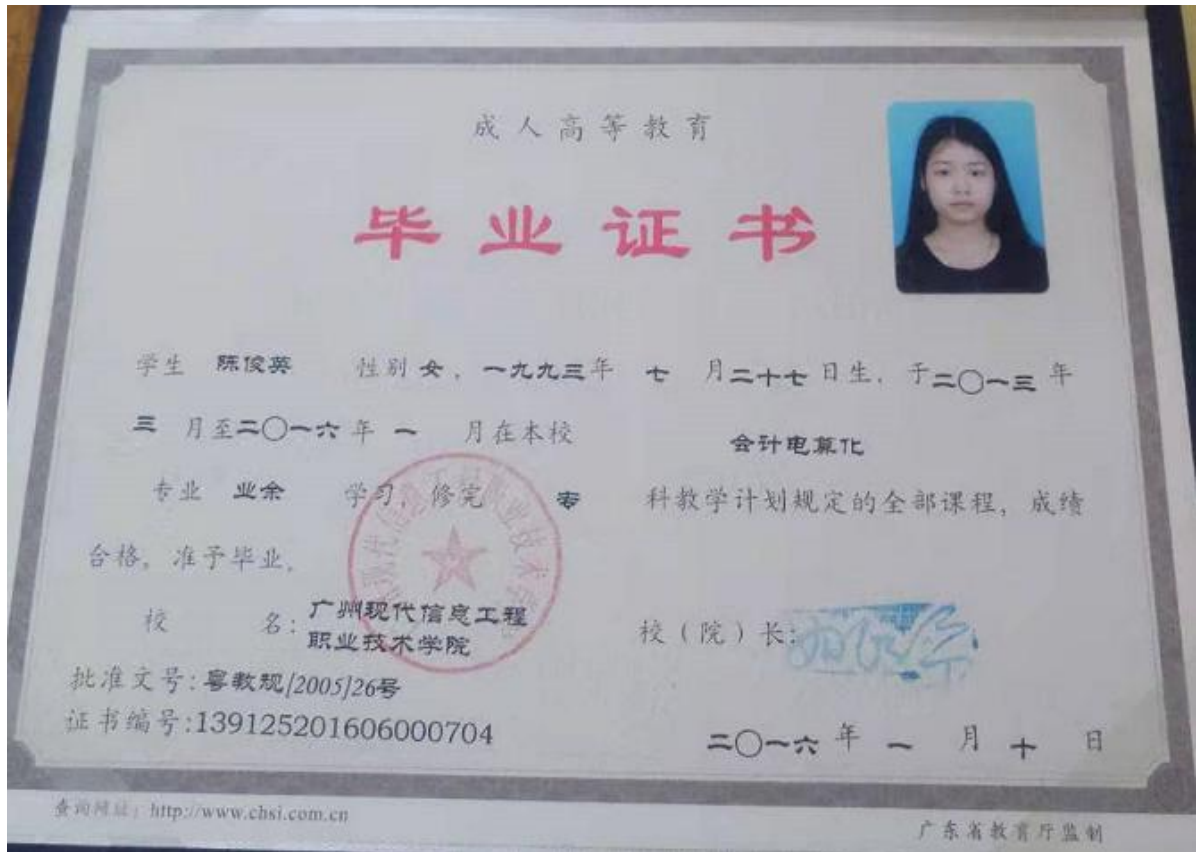 成人高等教育
毕业证书
学生 陈俊英 性别 女，一九九三年 七 月二十七日生，于二〇一三年
三 月至二〇一六年 一 月在本校 会计电算化
专业 业余 学习，修完 专 科教学计划规定的全部课程，成绩
合格，准予毕业。
校 名：广州现代信息工程
职业技术学院
校（院）长：
批准文号：粤教规[2005]26号
证书编号:139125201606000704
二〇一六年 一 月 十 日
查询网址：http://www.chsi.com.cn
广东省教育厅监制